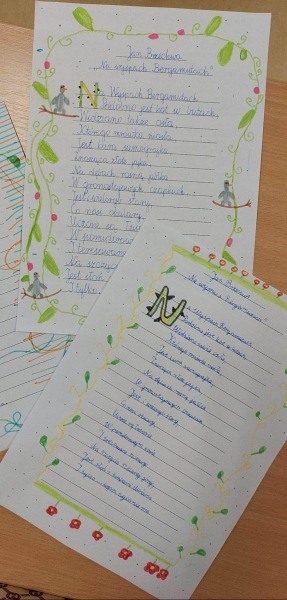 Jan Brzechwa
„Na wyspach Bergamutach"
Na Wyspach Bergamutach
Podobno jest kot w butach,
Widziano także osła,
Którego mrówka niosła
Jest kura samograjka
Znosząca złote jajka,
Na dębach rosną jabłka
W gronostajowych czapkach,
Jest wieloryb stary,
Co nosi okulary,
Uczone są
W pomidorow
I tresowane
Na szczyc
Jest słoń
I tylko
Jan Brzechwa
„Na wyspach Bergamutach"
Na Wyspach Bergamutach
Podobno jest kot w butach
Widziano także osła
Którego mrówka niosła
Jest kura samograjka
Znosząca złote jajka
Na dębach rosną jabłka
W gronostajowych czapkach
Jest i wieloryb stary
Co nosi okulary
Uczone są łososie
W pomidorowym sosie
I tresowane szczury
Na szczycie szklanej góry
Jest słoń z trąbami dwiema
I tylko wysp tych nie ma